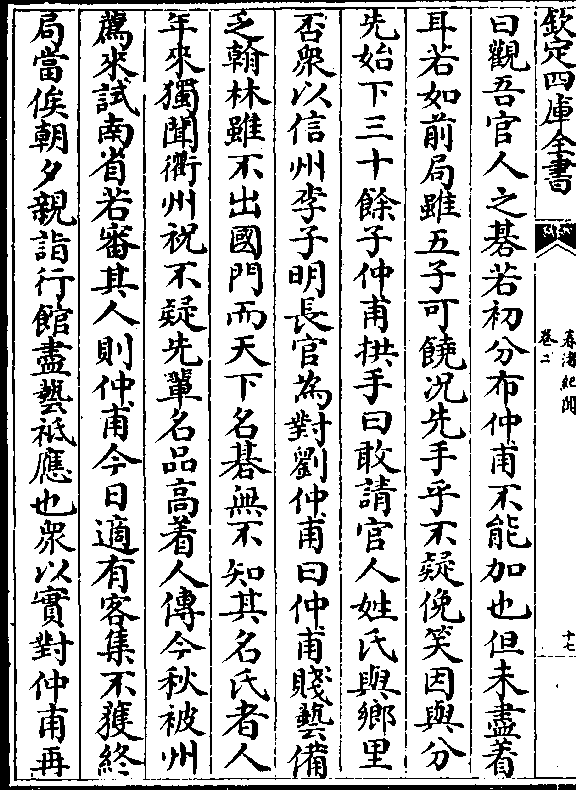 欽定四庫全書
春渚紀聞
卷二
十七
曰觀吾官人之碁若初分布仲甫不能加也但未盡着
耳若如前局雖五子可饒况先手乎不疑俛笑因與分
先始下三十餘子仲甫拱手曰敢請官人姓氏與鄉里
否衆以信州李子明長官為對劉仲甫曰仲甫賤藝備
乏翰林雖不出國門而天下名碁無不知其名氏者人
年來獨聞衢州祝不疑先輩名品高着人傳今秋被州
薦來試南省若審其人則仲甫今日適有客集不獲終
局當俟朝夕親詣行館盡藝祗應也衆以實對仲甫再